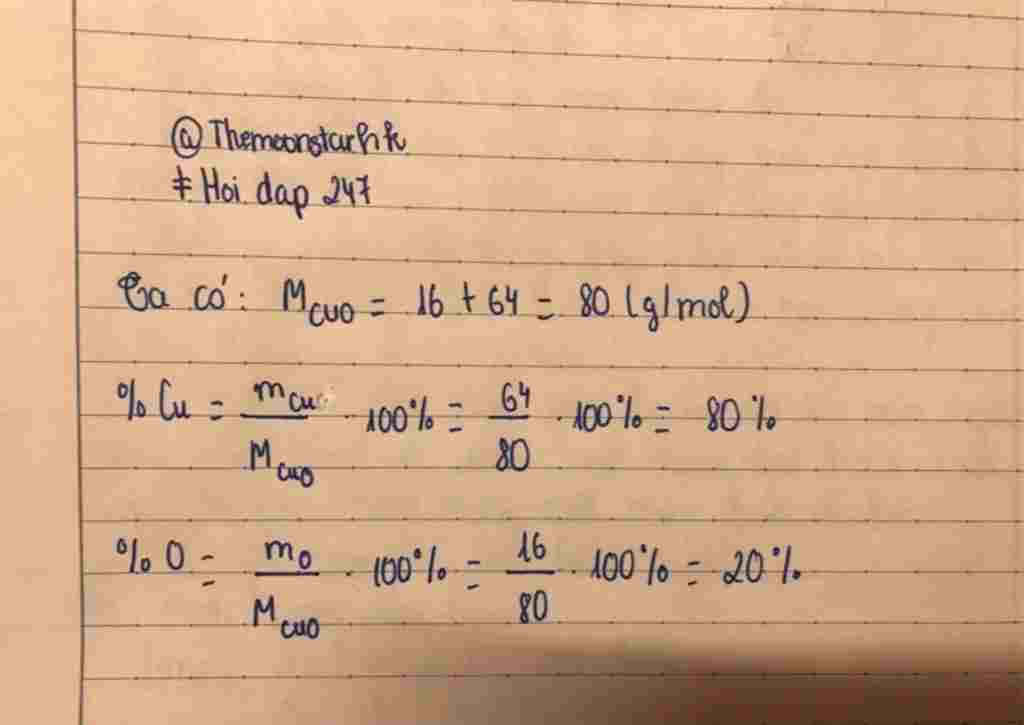 @ Themoonstarhk
# Hoi dap 247
Ta có: M_CuO = 16 + 64 = 80 (g/mol)
% Cu = m_Cu / M_CuO . 100% = 64 / 80 . 100% = 80%
% O = m_O / M_CuO . 100% = 16 / 80 . 100% = 20%